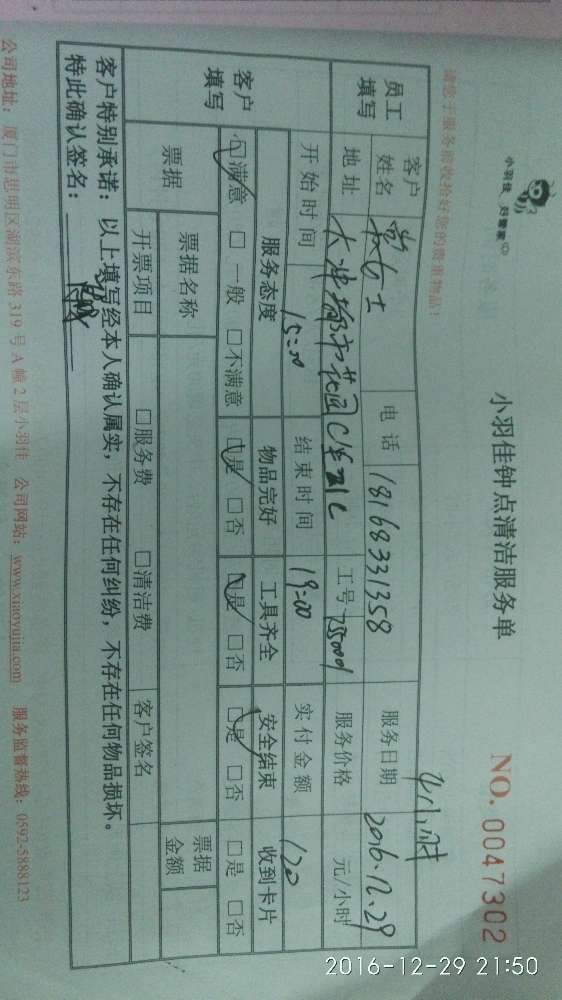 小羽佳 好管家
小羽佳钟点清洁服务单
NO. 0047302
请您于服务前收拾好您的贵重物品！
4小时
员工填写 客户姓名 女士 电话 18168331358 服务日期 2016.12.29
地址 大冲都市花园C1座21C 工号 755001 服务价格 元/小时
开始时间 15:00 结束时间 19:00 实付金额 120
客户填写 服务态度 物品完好 工具齐全 安全结束 收到卡片
☑满意 □一般 □不满意 ☑是 □否 ☑是 □否 ☑是 □否 □是 □否
票据 票据名称 票据金额
开票项目 □服务费 □清洁费 客户签名
客户特别承诺：以上填写经本人确认属实，不存在任何纠纷，不存在任何物品损坏。
特此确认签名：
公司地址：厦门市思明区湖滨东路319号A幢2层小羽佳 公司网站：www.xiaoyujia.com 服务监督热线：0592-5888123
2016-12-29 21:50